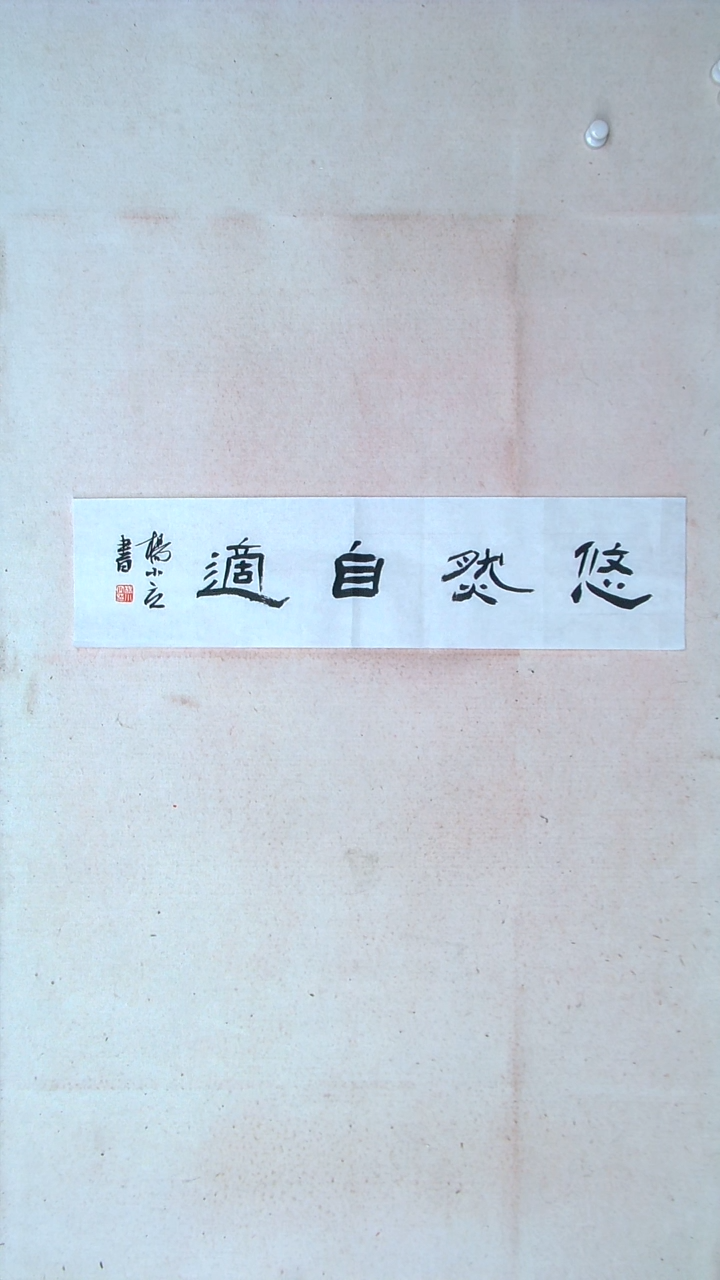 悠然自適
楊小
書